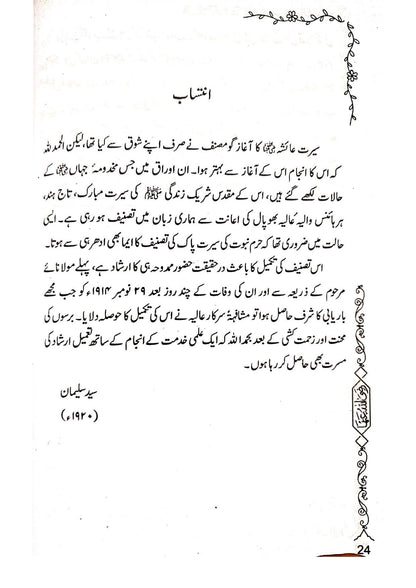 انتساب
سیرت عائشہؓ کا آغاز گو مصنف نے صرف اپنے شوق سے کیا تھا، لیکن الحمد للہ
کہ اس کا انجام اس کے آغاز سے بہتر ہوا۔ ان اوراق میں جس مخدومۂ جہاںؓ کے
حالات لکھے گئے ہیں، اس کے مقدس شریک زندگی ﷺ کی سیرت مبارک، تاج ہند،
ہر ہائنس والیۂ عالیہ بھوپال کی اعانت سے ہماری زبان میں تصنیف ہو رہی ہے۔ ایسی
حالت میں ضروری تھا کہ حرم نبوت کی سیرت پاک کی تصنیف کا ایما بھی ادھر ہی سے ہوتا۔
اس تصنیف کی تکمیل کا باعث درحقیقت حضور ممدوحہ ہی کا ارشاد ہے، پہلے مولانائے
مرحوم کے ذریعہ سے اور ان کی وفات کے چند روز بعد ۲۹ نومبر ۱۹۱۴ء کو جب مجھے
باریابی کا شرف حاصل ہوا تو مشافہۃً سرکار عالیہ نے اس کی تکمیل کا حوصلہ دلایا۔ برسوں کی
محنت اور زحمت کشی کے بعد بحمد اللہ کہ ایک علمی خدمت کے انجام کے ساتھ تعمیل ارشاد کی
مسرت بھی حاصل کر رہا ہوں۔
سید سلیمان
(۱۹۲۰ء)
24